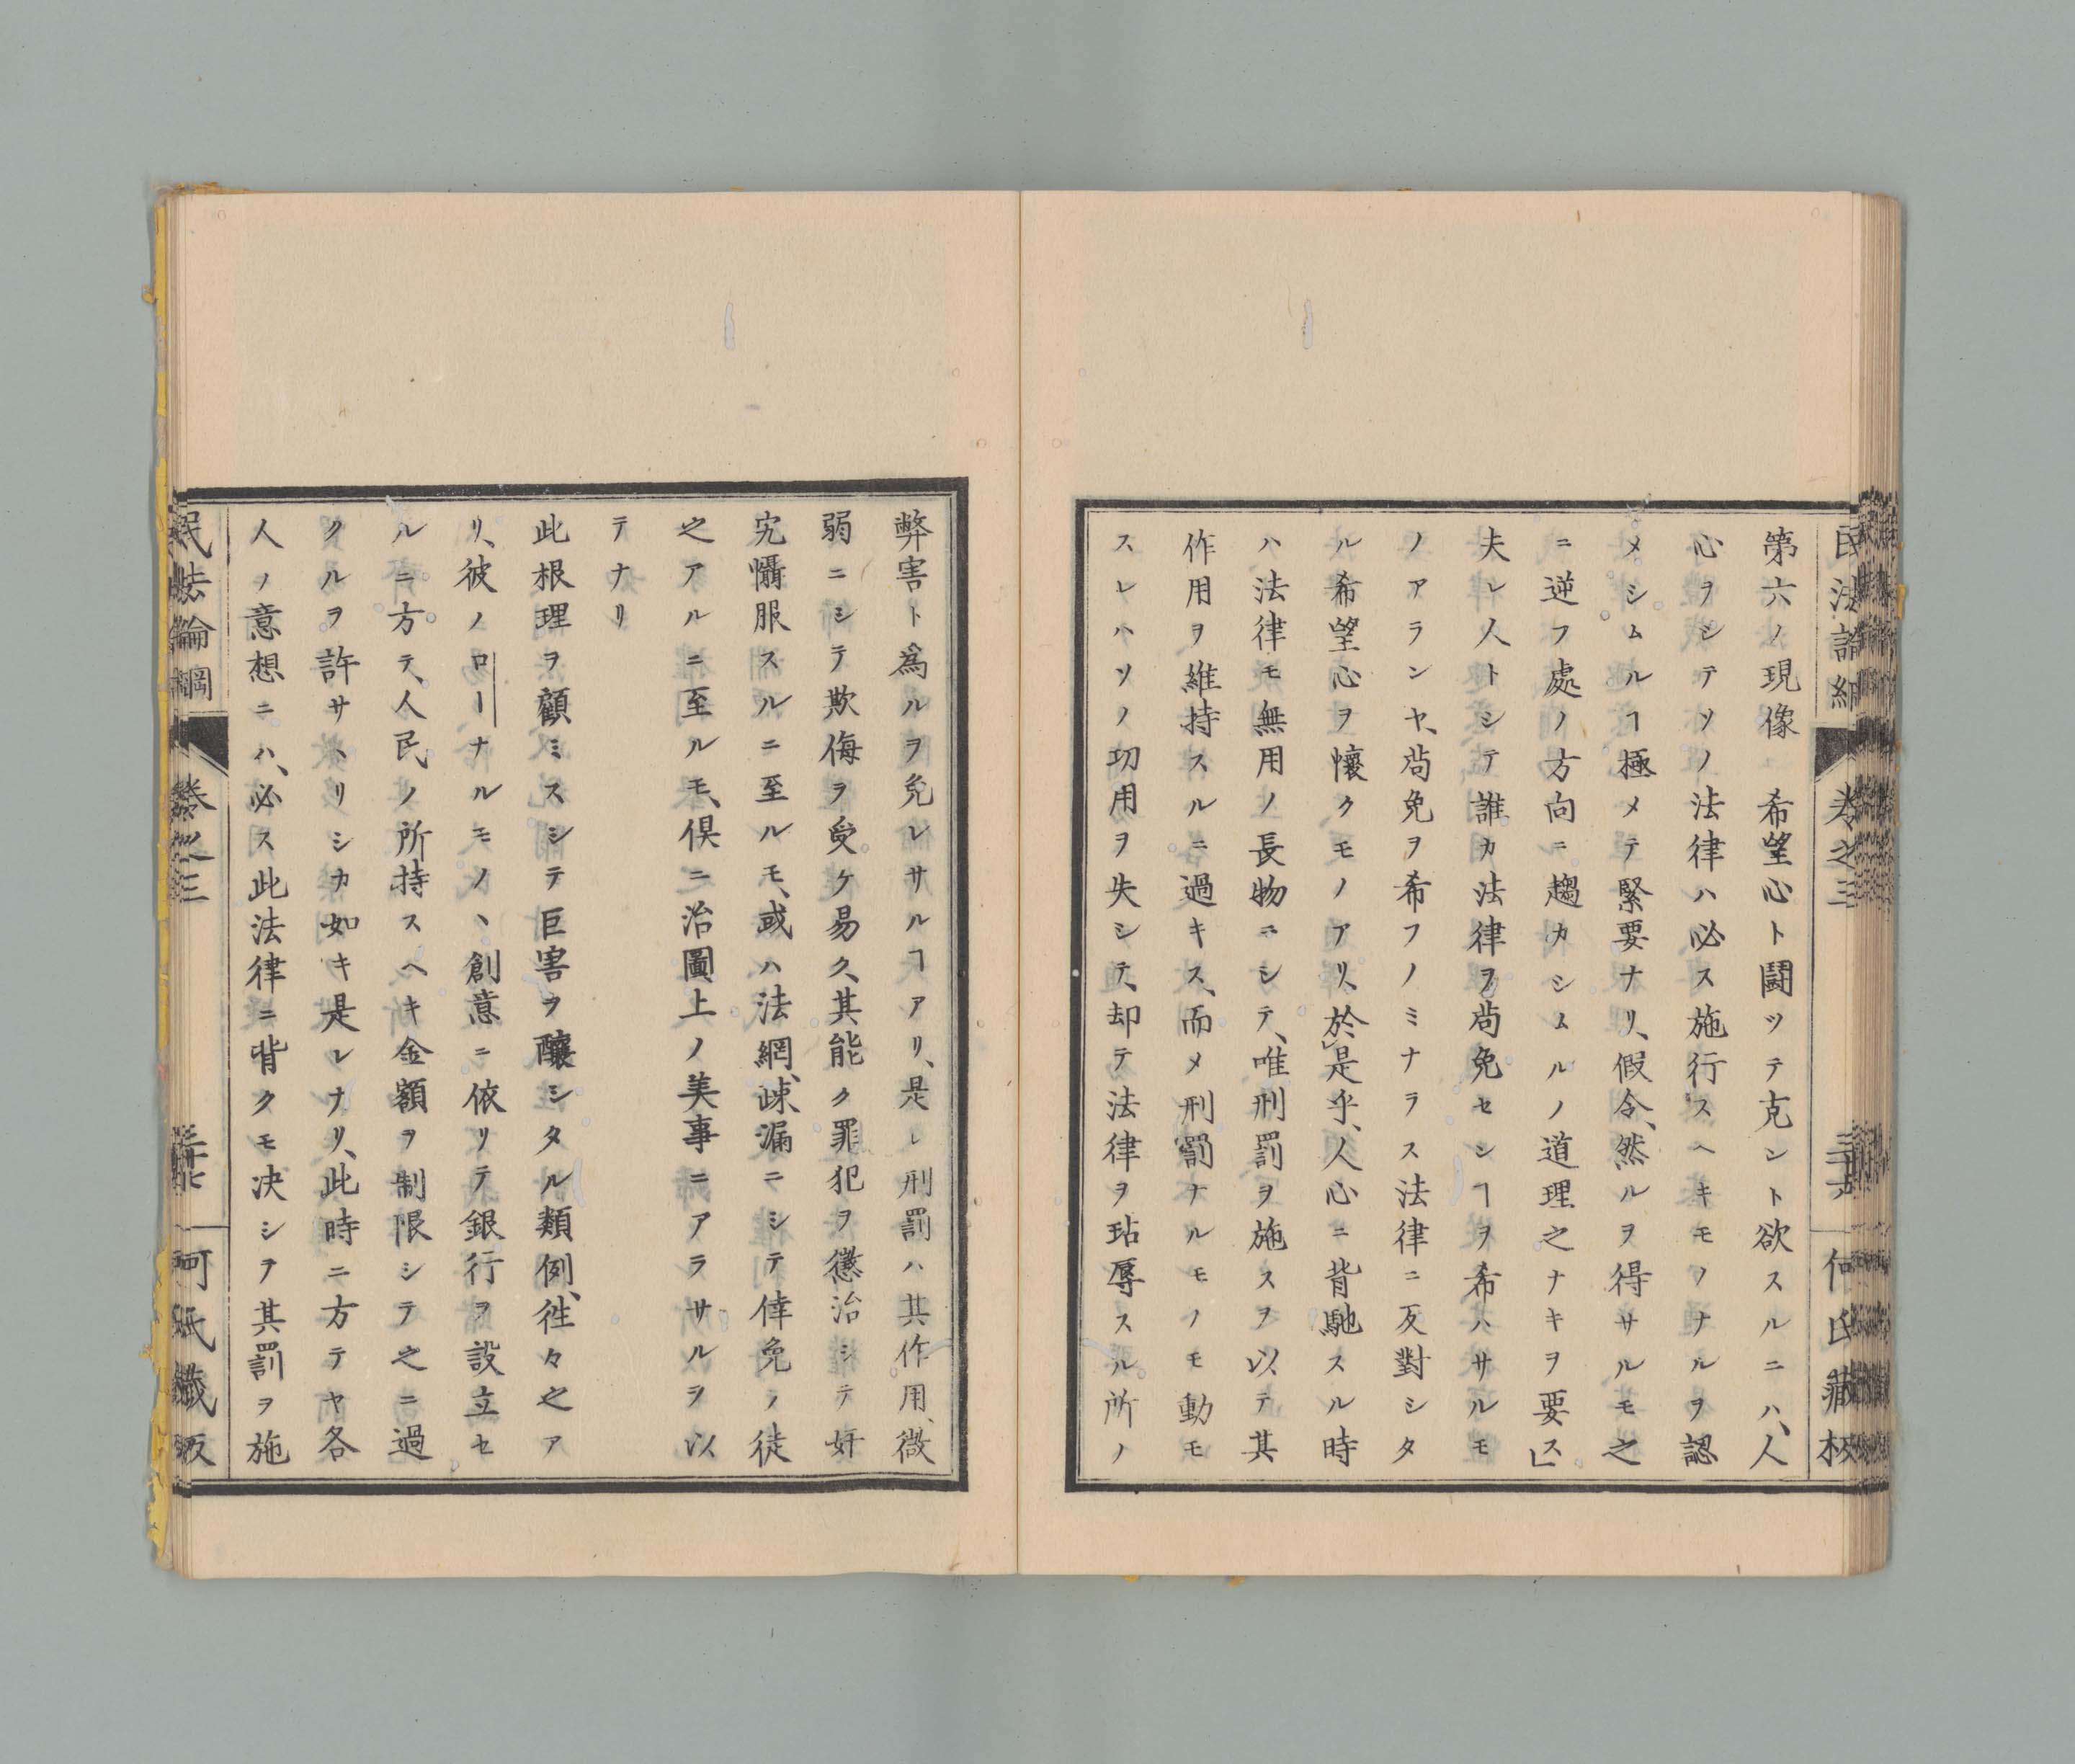 第六ノ現像 希望心ト鬪ツテ克ント欲スルニハ、人
心ヲシテソノ法律ハ必ス施行スヘキモノナルヲ認
メシムルヿ極メテ緊要ナリ、假令、然ルヲ得サルモ之
ニ逆フ處ノ方向ニ趨カシムルノ道理之ナキヲ要ス」
夫レ人トシテ誰カ法律ヲ茍免セシヿヲ希ハサルモ
ノアランヤ、茍免ヲ希フノミナラス法律ニ反對シタ
ル希望心ヲ懷クモノアリ、於是乎、人心ニ背馳スル時
ハ法律モ無用ノ長物ニシテ、唯刑罰ヲ施スヲ以テ其
作用ヲ維持スルニ過キス、而メ刑罰ナルモノモ動モ
スレハソノ功用ヲ失シテ、却テ法律ヲ玷辱スル所ノ
民法論綱 卷之三 何氏藏板
弊害ト爲ルヲ免レサルヿアリ、是レ刑罰ハ其作用、微
弱ニシテ欺侮ヲ受ケ易ク、其能ク罪犯ヲ懲治シテ奸
宄懾服スルニ至ルモ、或ハ法網、疎漏ニシテ倖免ノ徒
之アルニ至ルモ、倶ニ治圖上ノ美事ニアラサルヲ以
テナリ
此根理ヲ顧ミスシテ巨害ヲ釀シタル類例、徃々之ア
リ、彼ノローナルモノ、創意ニ依リテ銀行ヲ設立セ
ルニ方テ、人民ノ所持スヘキ金額ヲ制限シテ之ニ過
クルヲ許サヽリシカ如キ是レナリ、此時ニ方テヤ各
人ノ意想ニハ、必ス此法律ニ背クモ决シヲ其罰ヲ施
民法論綱 卷之三 何氏藏版